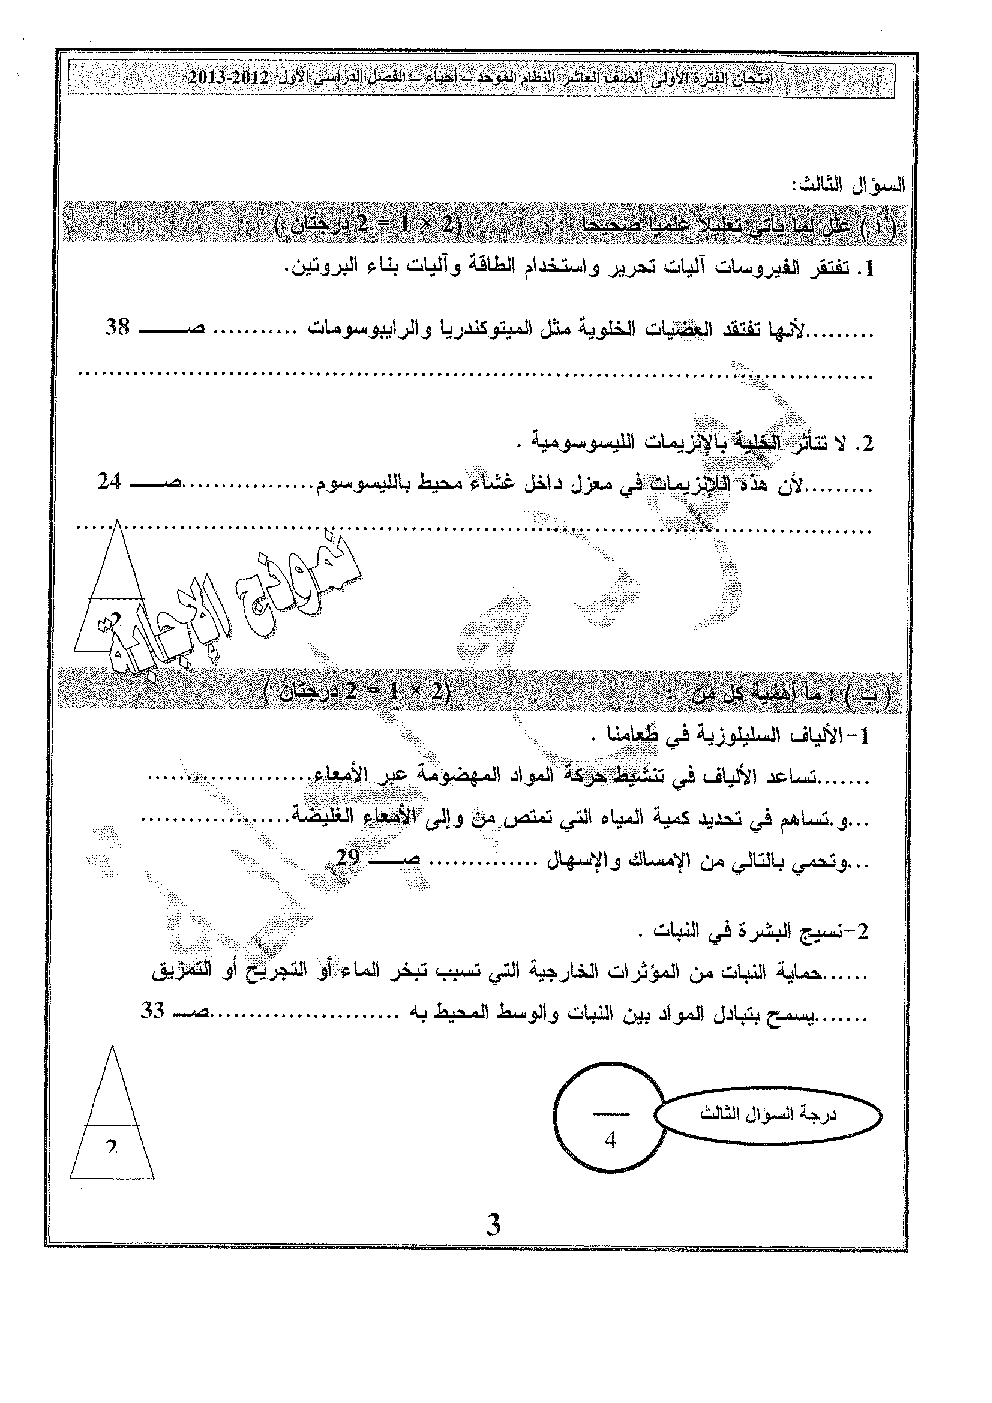 امتحان الفترة الأولى للصف العاشر النظام الموحد – أحياء – الفصل الدراسي الأول- 2012-2013
السؤال الثالث:
( أ ) علل لما يأتي تعليلاً علمياً صحيحاً (2 × 1 = 2 درجتان )
1. تفتقر الفيروسات آليات تحرير واستخدام الطاقة وآليات بناء البروتين.
.........لأنها تفتقد العضيات الخلوية مثل الميتوكندريا والرايبوسومات ........... صـــــ 38
2. لا تتأثر الخلية بالإنزيمات الليسوسومية .
.........لأن هذه الإنزيمات في معزل داخل غشاء محيط بالليسوسوم.................صــــ 24
2
نموذج الإجابة
( ب ) : ما أهمية كل من : (2 × 1 = 2 درجتان )
1-الألياف السليلوزية في طعامنا .
.......تساعد الألياف في تنشيط حركة المواد المهضومة عبر الأمعاء....................
...و.تساهم في تحديد كمية المياه التي تمتص من وإلى الأمعاء الغليضة..................
...وتحمي بالتالي من الإمساك والإسهال .............. صــــ 29
2-نسيج البشرة في النبات .
......حماية النبات من المؤثرات الخارجية التي تسبب تبخر الماء أو التجريح أو التمزيق
.......يسمح بتبادل المواد بين النبات والوسط المحيط به ........................صـــ 33
درجة السؤال الثالث
4
2
3